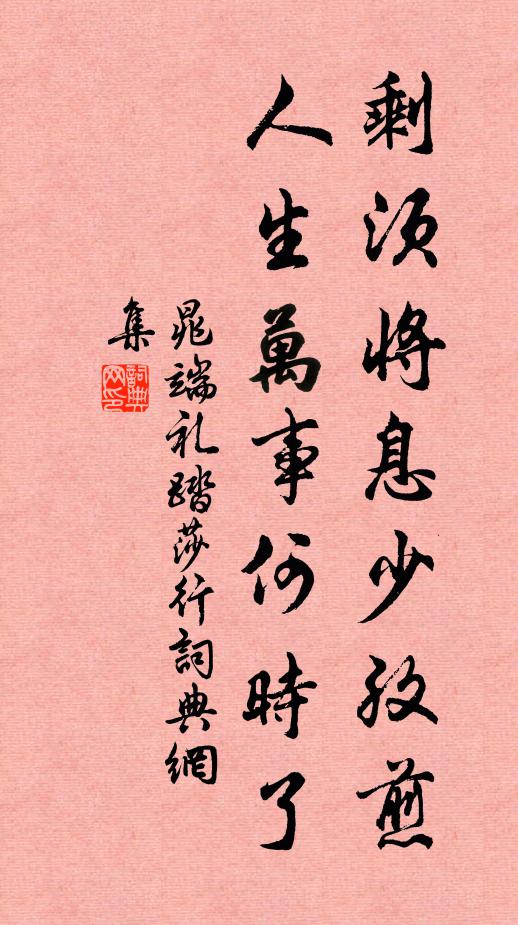 剩须将息少孜煎
人生萬事何時了
晁端礼踏莎行詞典網
集
詞典网印